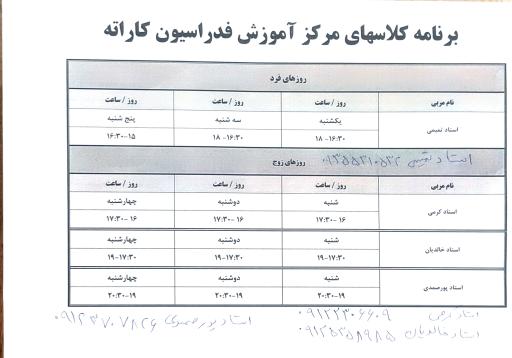 برنامه کلاسهای مرکز آموزش فدراسیون کاراته
روزهای فرد
نام مربی روز / ساعت روز / ساعت روز / ساعت
استاد تمیمی یکشنبه سه شنبه پنج شنبه
۱۸ -۱۶:۳۰ ۱۸ -۱۶:۳۰ ۱۶:۳۰-۱۵
روزهای زوج استاد تمیمی
نام مربی روز / ساعت روز / ساعت روز / ساعت
استاد کرمی شنبه دوشنبه چهارشنبه
۱۷:۳۰- ۱۶ ۱۷:۳۰- ۱۶ ۱۷:۳۰- ۱۶
استاد خالدیان شنبه دوشنبه چهارشنبه
۱۹-۱۷:۳۰ ۱۹-۱۷:۳۰ ۱۹-۱۷:۳۰
استاد پورصمدی شنبه دوشنبه چهارشنبه
۲۰:۳۰-۱۹ ۲۰:۳۰-۱۹ ۲۰:۳۰-۱۹
استاد کرمی ۰۹۱۲۲۳۰۶۶۰۹
استاد خالدیان ۰۹۱۲۵۲۵۸۹۸۵
استاد پورصمدی ۰۹۱۲۳۷۰۷۸۲۶